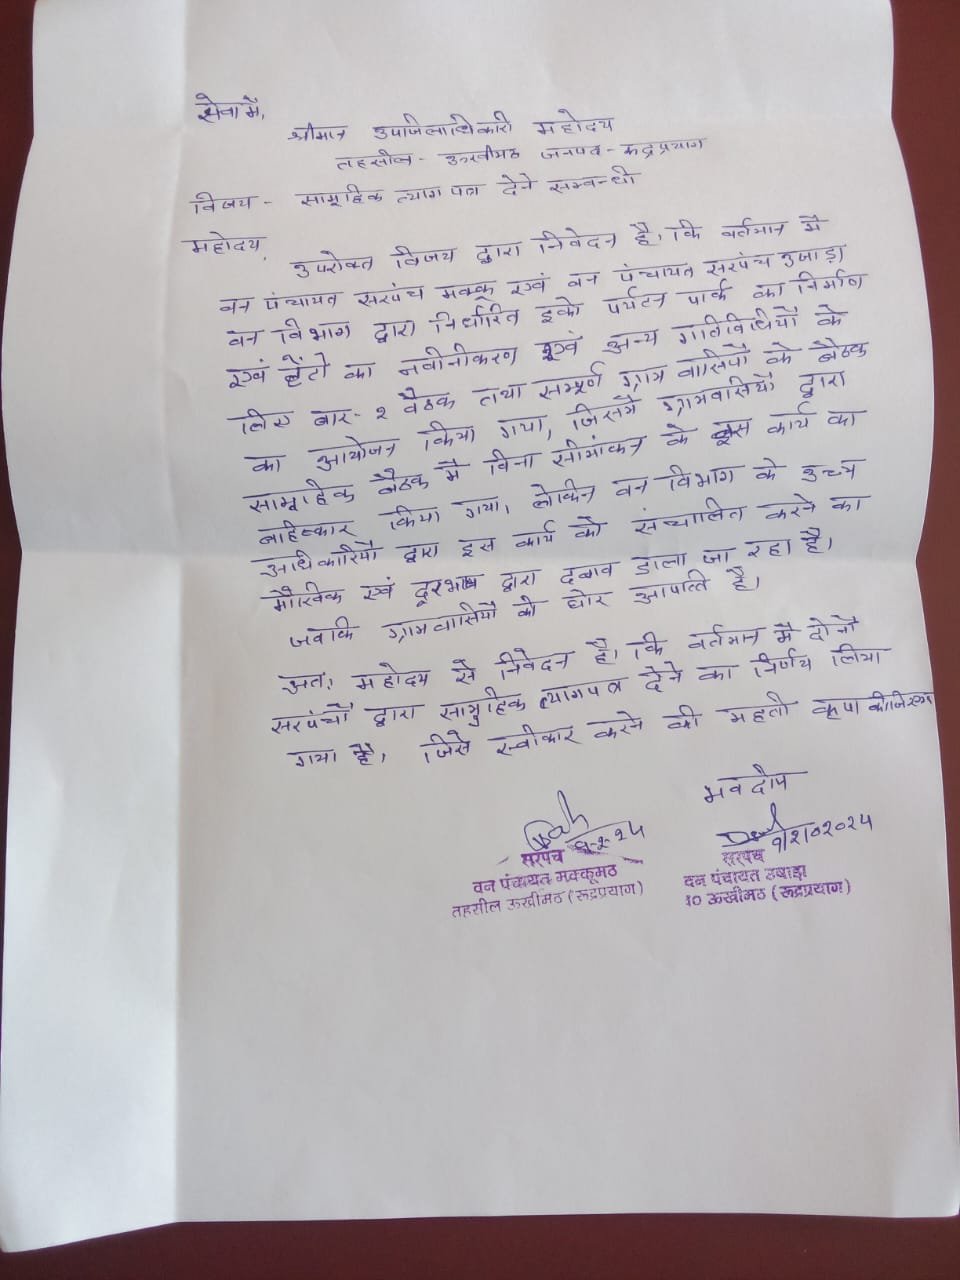 सेवा में,
श्रीमान उपजिलाधिकारी महोदय
तहसील - ऊखीमठ जनपद - रूद्रप्रयाग
विषय - सामूहिक त्याग पत्र देने सम्बन्धी
महोदय,
उपरोक्त विषय द्वारा निवेदन है, कि वर्तमान में
वन पंचायत सरपंच मक्कू एवं वन पंचायत सरपंच उषाड़ा
वन विभाग द्वारा निर्धारित इको पर्यटन पार्क का निर्माण
एवं हटों का नवीनीकरण एवं अन्य गतिविधियों के
लिए बार-२ बैठक तथा सम्पूर्ण ग्राम वासियों के बैठक
का आयोजन किया गया, जिसमें ग्रामवासियों द्वारा
सामूहिक बैठक में बिना सीमांकन के इस कार्य का
बहिष्कार किया गया, लेकिन वन विभाग के उच्च
अधिकारियों द्वारा इस कार्य को संचालित करने का
मौखिक एवं दूरभाष द्वारा दबाव डाला जा रहा है।
जबकि ग्रामवासियों को घोर आपत्ति है।
अतः महोदय से निवेदन है, कि वर्तमान में दोनों
सरपंचों द्वारा सामुहिक त्यागपत्र देने का निर्णय लिया
गया है, जिसे स्वीकार करने की महती कृपा कीजिएगा
भवदीय
9-2-24
9/2/02024
सरपंच
वन पंचायत मक्कूमठ
तहसील ऊखीमठ (रूद्रप्रयाग)
सरपंच
वन पंचायत उषाड़ा
ऊखीमठ (रूद्रप्रयाग)